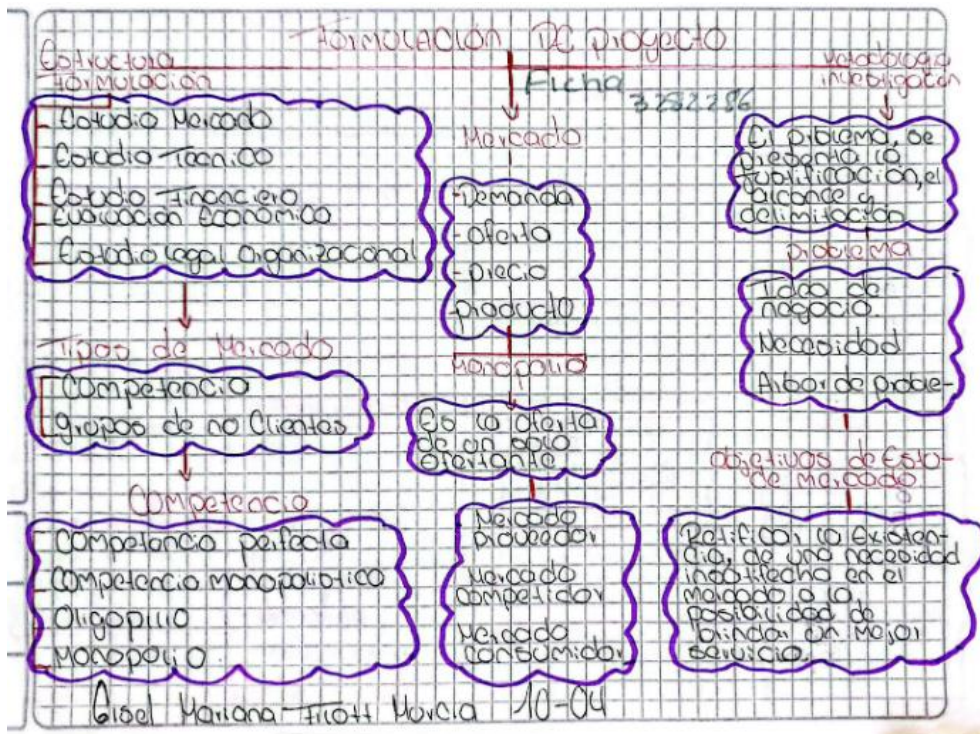 Formulación De proyecto
Estructura
Formulación
Estudio Mercado
Estudio Tecnico
Estudio Financiero
Evaluación Económica
Estudio legal Organizacional
Tipos de Mercado
Competencia
grupos de no Clientes
Competencia
Competencia perfecta
Competencia Monopolistica
Oligopilio
Monopolio
Ficha
3282286
Mercado
-Demanda
-oferta
-precio
-producto
Monopolio
Es la oferta
de un solo
ofertante
Mercado
proveedor
Mercado
competidor
Mercado
consumidor
Metodologia
investigación
El problema, se
presenta la
justificación, el
alcance y
delimitación
problema
Idea de
negocio
Necesidad
Arbor de proble-
objetivos de Estu-
de mercado
Ratificar la Existen-
cia, de una necesidad
insatifecha en el
mercado o la
posibilidad de
brindar un mejor
servicio.
Gisel Mariana Murcia 10-04